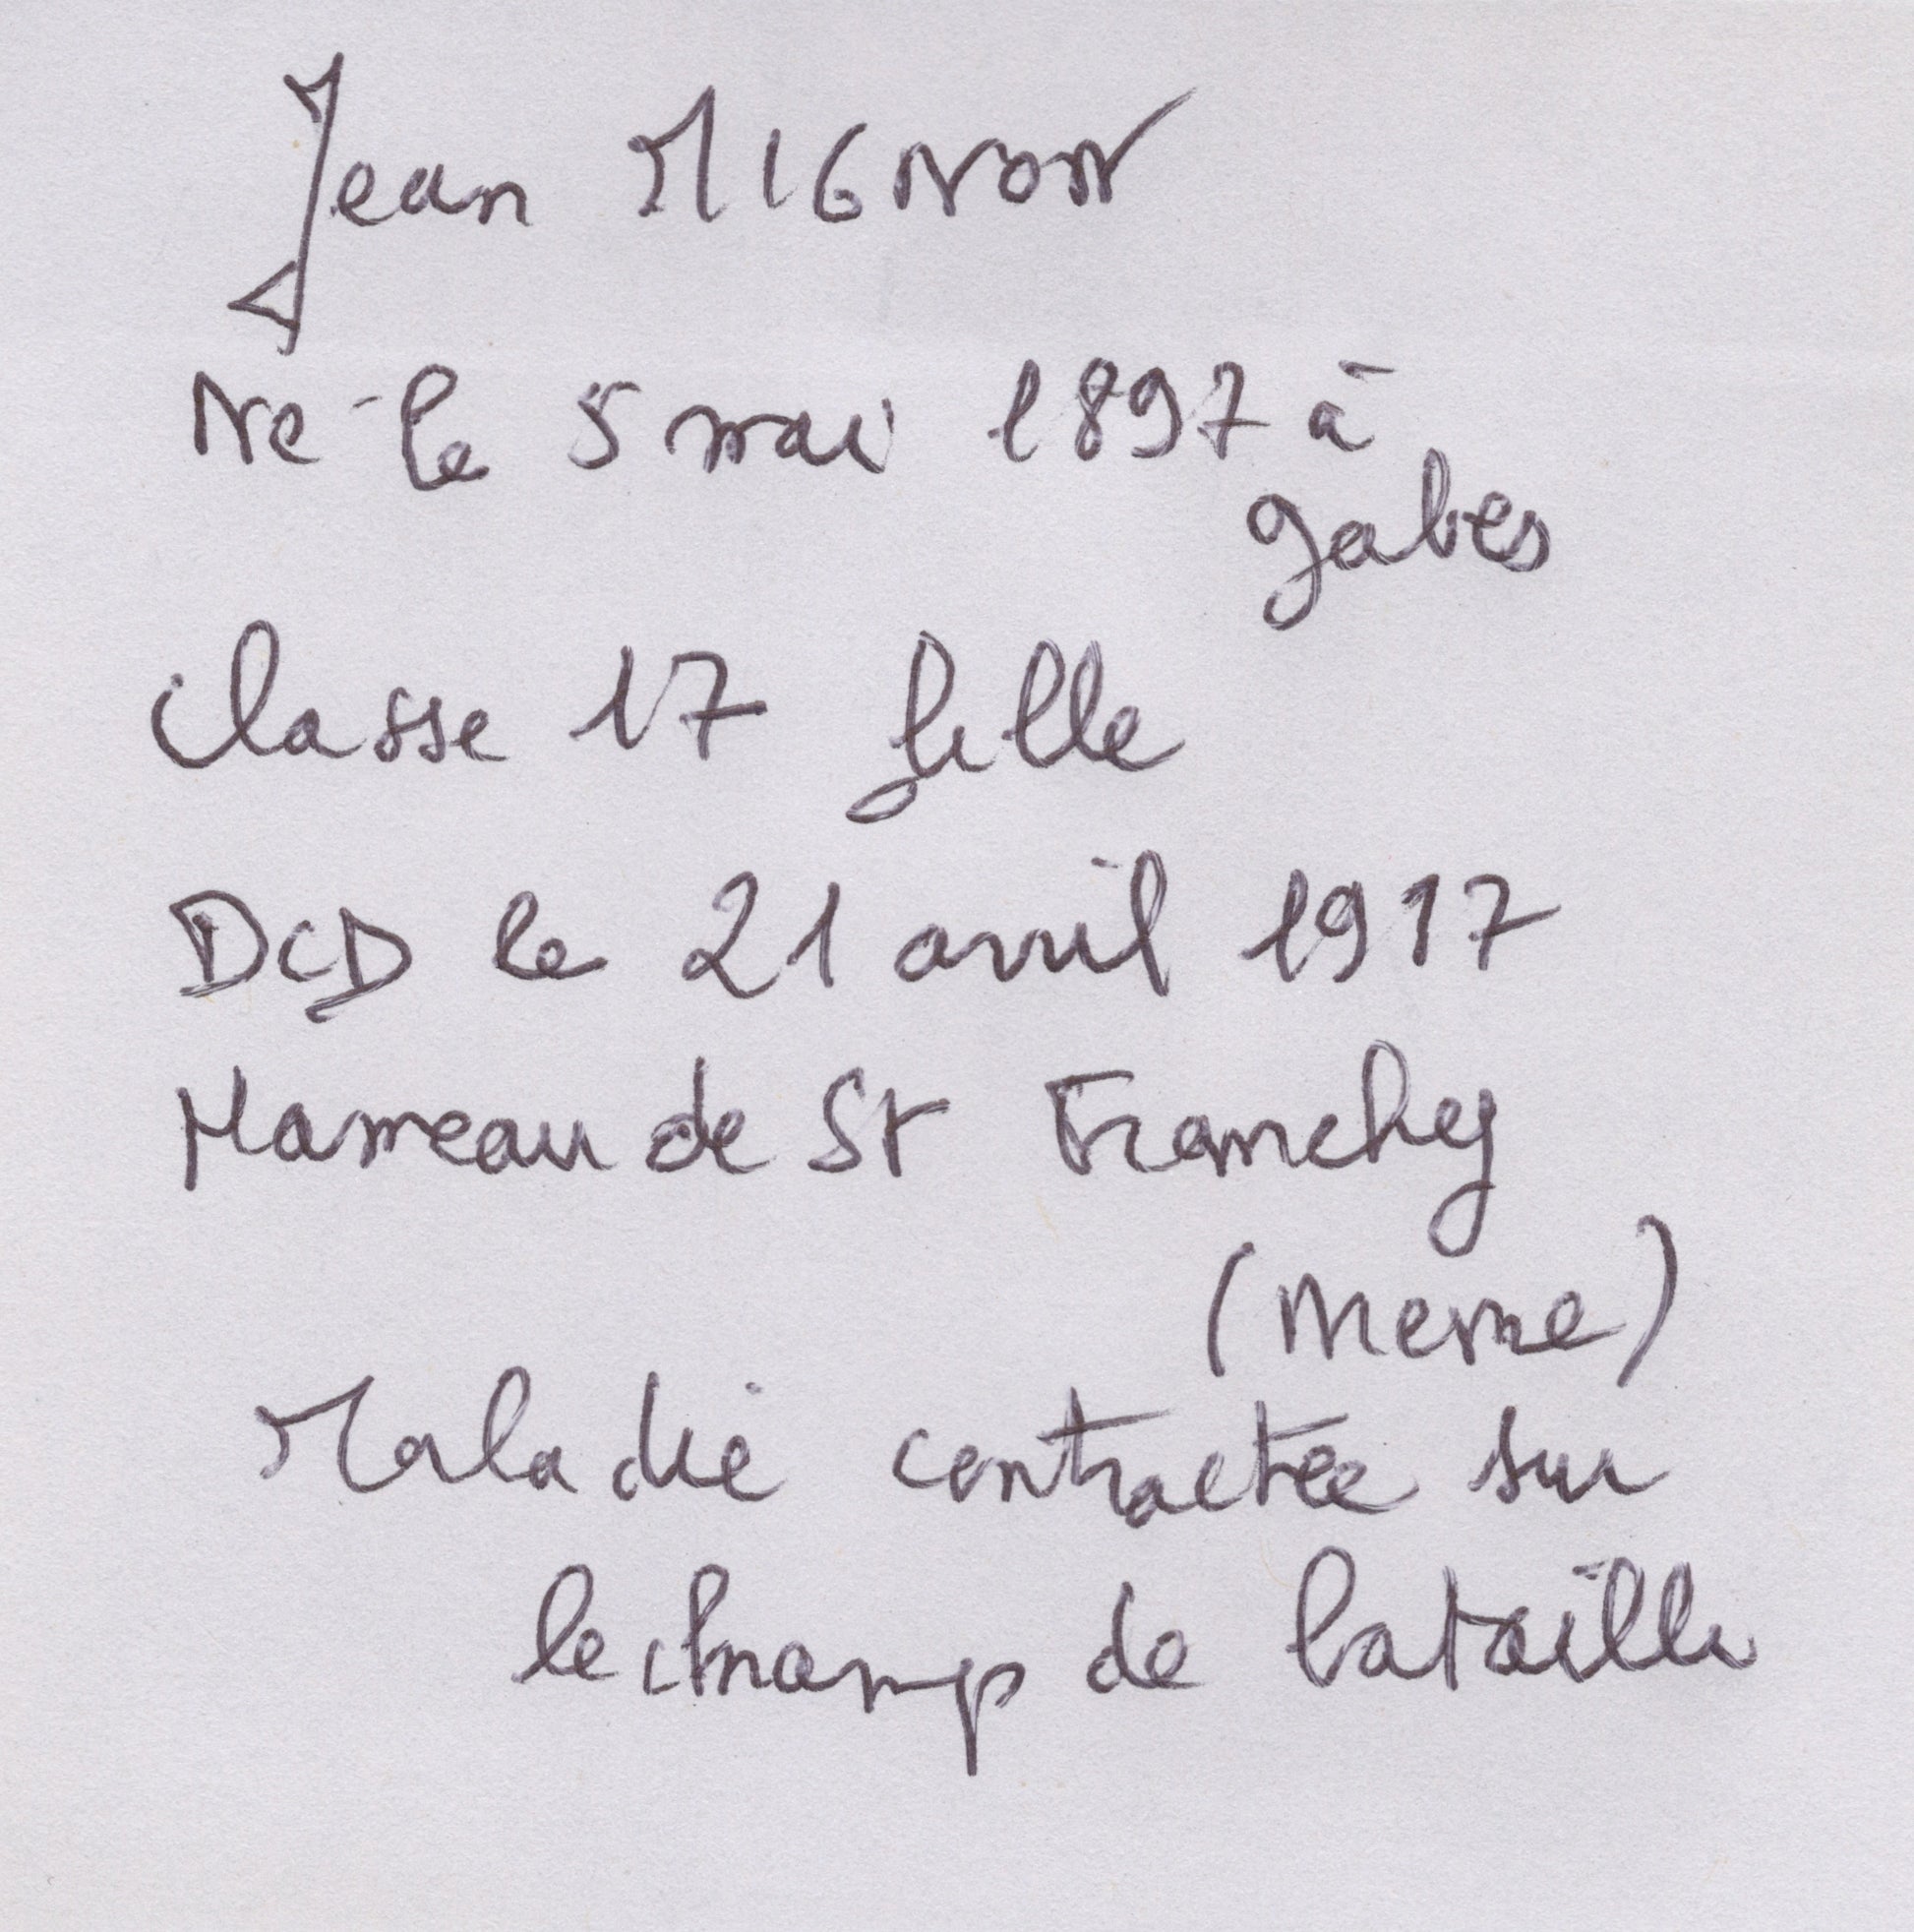 Jean MIGNON
Né le 5 mai 1897 à
Gabes
Classe 17 Lille
DCD le 21 avril 1917
Hameau de St Franchy
(Marne)
Maladie contractée sur
le champ de bataille